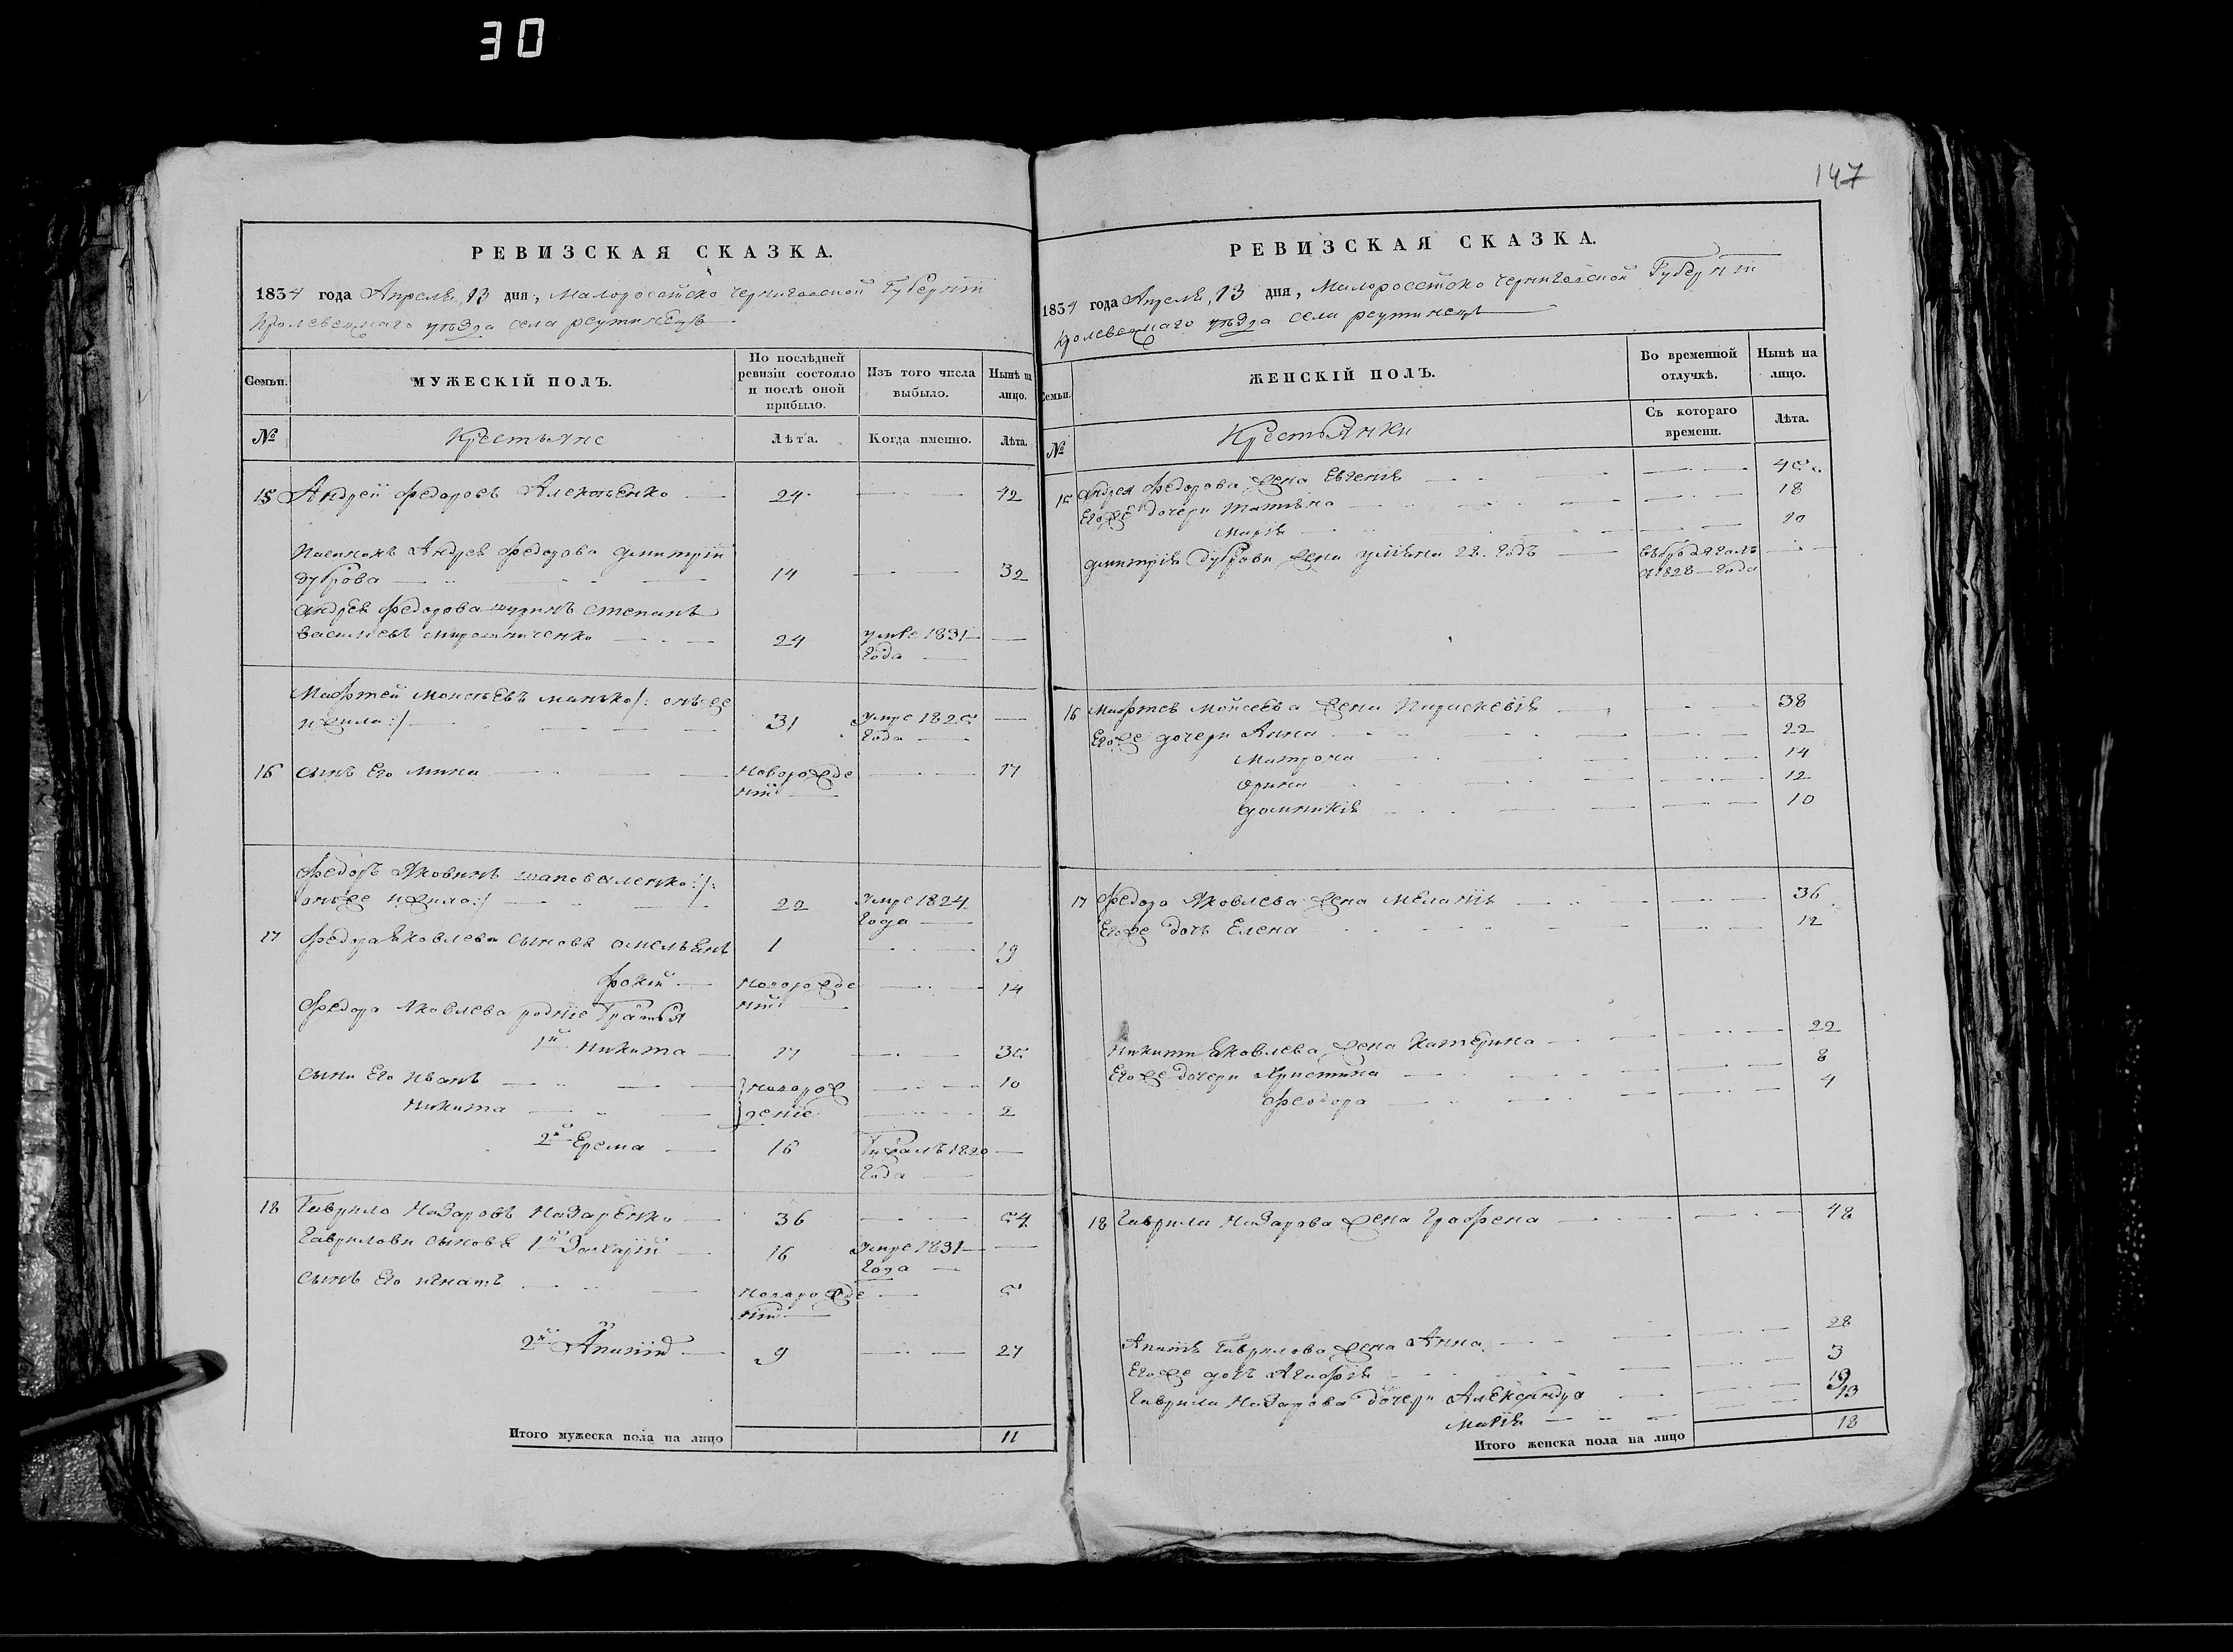 30
147
РЕВИЗСКАЯ СКАЗКА.
1834 года Апреля, 13 дня, Малоросейско Черниговской Губернiи
Кролевецкаго уѣзда села реутинецъ
Семьи.
МУЖЕСКІЙ ПОЛЪ.
По послѣдней ревизіи состояло и послѣ оной прибыло.
Изъ того числа выбыло.
Нынѣ на лицо.
№ Крестьяне Лѣта. Когда именно. Лѣта.
15 Андрей Федоровъ 24 42
Андрея Федорова Дмитрій
дуброва 14 32
Андрея Федорова шуринъ Степанъ
Васильевъ Мирошниченко 24 умре 1831
года
Мойсѣевъ /: онъ же
31 Умре 182
года
16 Сынъ Его Мина новорожде 17
нній
Федоръ Яковинъ шаповаленко :/:
онъ же :/ 22 Умре 1824
Года
17 Федора Яковлева Сыновя Омельянъ 1 19
Фокій новорожде 14
нній
Федора Яковлева родніе Братья
1й Никита 17 35
Сыни Его Иванъ новорож 10
Никита деніе 2
2й Ерема 16 Бижалъ 1820
Года
18 Гаврило Назаровъ Назаренко 36 54
Гавриловы Сыновя 1й Захарій 16 Умре 1831
Года
Сынъ Его Игнатъ новорожде 5
нній
2й 9 27
Итого мужеска пола на лицо 11
РЕВИЗСКАЯ СКАЗКА.
1834 года Апреля, 13 дня, Малоросейско Черниговской Губернiи
Кролевецкаго уѣзда села реутинецъ
Семьи.
ЖЕНСКІЙ ПОЛЪ.
Во временной отлучкѣ.
Нынѣ на лицо.
№ Крестьянки Съ котораго времени. Лѣта.
15 Андрея Федорова жена Евгенія 45
Его же дочери Татьяна 18
Марія 10
Дмитрія Дубровы жена Уліяна 22. Годъ
съ 1828 Года
16 Мойсеева жена Параскевія 38
Его же дочери Анна 22
Матрона 14
Орина 12
Домникія 10
17 Федора Яковлева жена Меланія 36
Его же дочь Елена 12
Никиты Яковлева жена Катерина 22
Его же дочери Христина 8
Феодора 4
18 Гаврила Назарова жена Графена 48
Гаврилова жена Анна 28
Его же дочь Агафія 3
Гаврила Назарова дочери Александра 19
Марія 13
Итого женска пола на лицо 18